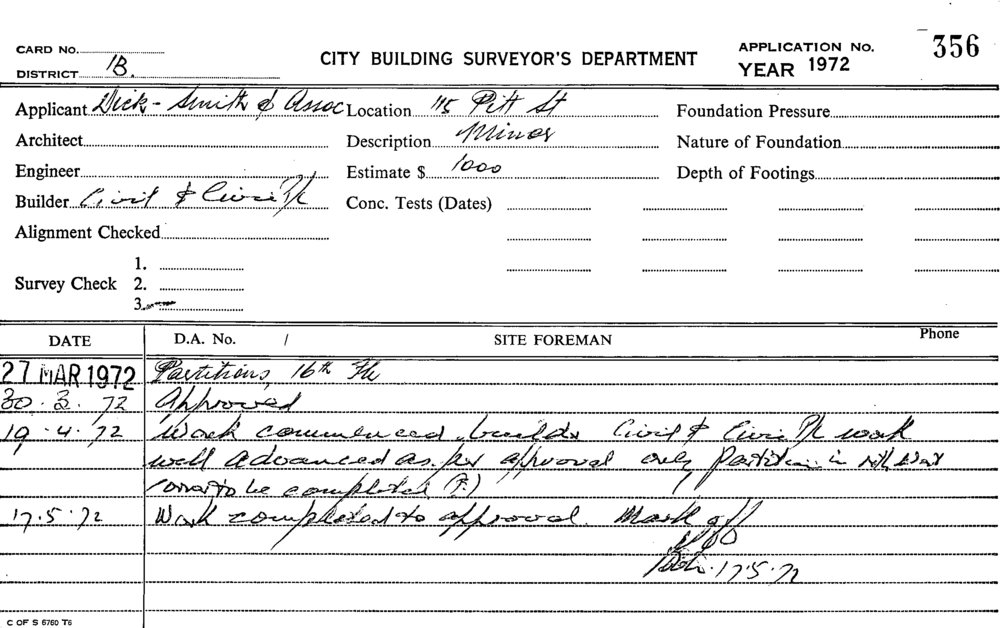 CARD No.
CITY BUILDING SURVEYOR'S DEPARTMENT
APPLICATION No. 356
DISTRICT 1B.
YEAR 1972
Applicant Dick-Smith & Assoc Location 115 Pitt St Foundation Pressure
Architect Description Minor Nature of Foundation
Engineer Estimate $ 1000 Depth of Footings
Builder Civil & Civic P/L Conc. Tests (Dates)
Alignment Checked
1.
Survey Check 2.
3.
DATE D.A. No. / SITE FOREMAN Phone
27 MAR 1972 Partitions, 16th Flr
30.3.72 Approved
19.4.72 Work commenced, builder Civil & Civic P/L work
well advanced as per approval only partition in
to be completed
17.5.72 Work completed to approval. Mark off
17.5.72
C OF S 6760 T6